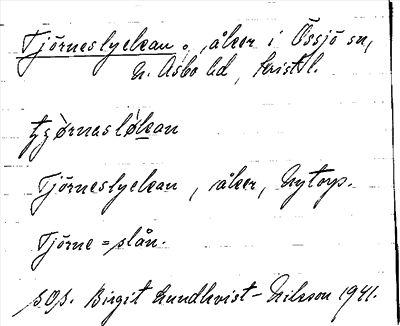 Tjörneslyckan, åker i Össjö sn,
N. Åsbo hd, Kristl.
Tjörneslyckan, åker, Nytorp.
Tjörne = slån.
Birgit Lundkvist-Nilsson 1941.